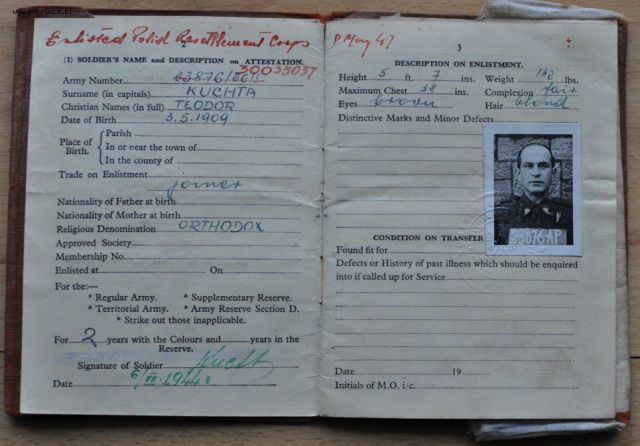 Enlisted Polish Resettlement Corps
2
(1) SOLDIER'S NAME AND DESCRIPTION ON ATTESTATION.
Army Number 30035037
Surname (in capitals) KUCHTA
Christian Names (in full) TEODOR
Date of Birth 3.5.1909
Place of Birth.
Parish
In or near the town of
In the county of
Trade on Enlistment
joiner
Nationality of Father at birth
Nationality of Mother at birth
Religious Denomination ORTHODOX
Approved Society
Membership No.
Enlisted at On
For the:—
* Regular Army. * Supplementary Reserve.
* Territorial Army. * Army Reserve Section D.
* Strike out those inapplicable.
For 2 years with the Colours and years in the Reserve.
Signature of Soldier
Date
May 47
3
DESCRIPTION ON ENLISTMENT.
Height 5 ft. 7 ins. Weight 142 lbs.
Maximum Chest 38 ins. Complexion fair
Eyes brown Hair blond
Distinctive Marks and Minor Defects
CONDITION ON TRANSFER
Found fit for
Defects or History of past illness which should be enquired
into if called up for Service
Date 19
Initials of M.O. i/c.